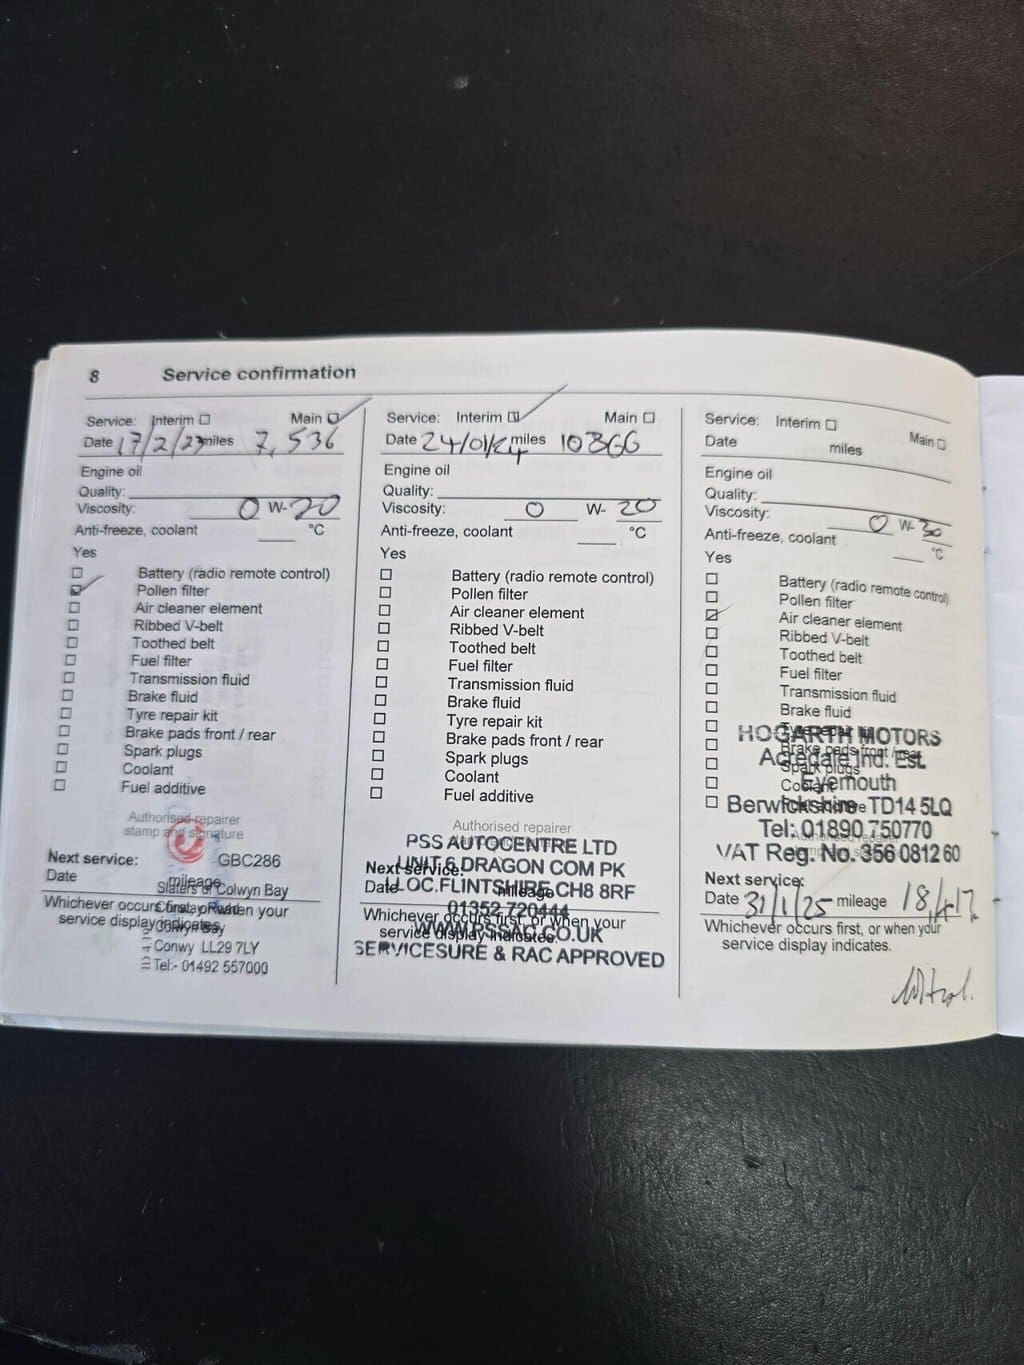 8 Service confirmation
Service: Interim Main
Date 17/2/23 miles 7,536
Engine oil
Quality:
Viscosity: 0 W-20
Anti-freeze, coolant °C
Yes
Battery (radio remote control)
Pollen filter
Air cleaner element
Ribbed V-belt
Toothed belt
Fuel filter
Transmission fluid
Brake fluid
Tyre repair kit
Brake pads front / rear
Spark plugs
Coolant
Fuel additive
Authorised repairer
stamp and signature
Next service: GBC286
Date mileage
Slaters of Colwyn Bay
Whichever occurs first, or when your
service display indicates.
Conway Road
Colwyn Bay
Conwy LL29 7LY
Tel:- 01492 557000
Service: Interim Main
Date 24/01/24 miles 10866
Engine oil
Quality:
Viscosity: 0 W- 20
Anti-freeze, coolant °C
Yes
Battery (radio remote control)
Pollen filter
Air cleaner element
Ribbed V-belt
Toothed belt
Fuel filter
Transmission fluid
Brake fluid
Tyre repair kit
Brake pads front / rear
Spark plugs
Coolant
Fuel additive
Authorised repairer
PSS AUTOCENTRE LTD
Next service:
UNIT 6 DRAGON COM PK
Date mileage
LOC.FLINTSHIRE CH8 8RF
01352 720444
Whichever occurs first, or when your
service display indicates.
WWW.PSSAC.CO.UK
SERVICESURE & RAC APPROVED
Service: Interim Main
Date miles
Engine oil
Quality:
Viscosity: 0 W- 30
Anti-freeze, coolant °C
Yes
Battery (radio remote control)
Pollen filter
Air cleaner element
Ribbed V-belt
Toothed belt
Fuel filter
Transmission fluid
Brake fluid
Tyre repair kit
HOGARTH MOTORS
Brake pads front / rear
Acredale Ind. Est.
Spark plugs
Eyemouth
Coolant
Berwickshire TD14 5LQ
Tel: 01890 750770
VAT Reg. No. 356 0812 60
Next service:
Date 31/1/25 mileage
Whichever occurs first, or when your
service display indicates.